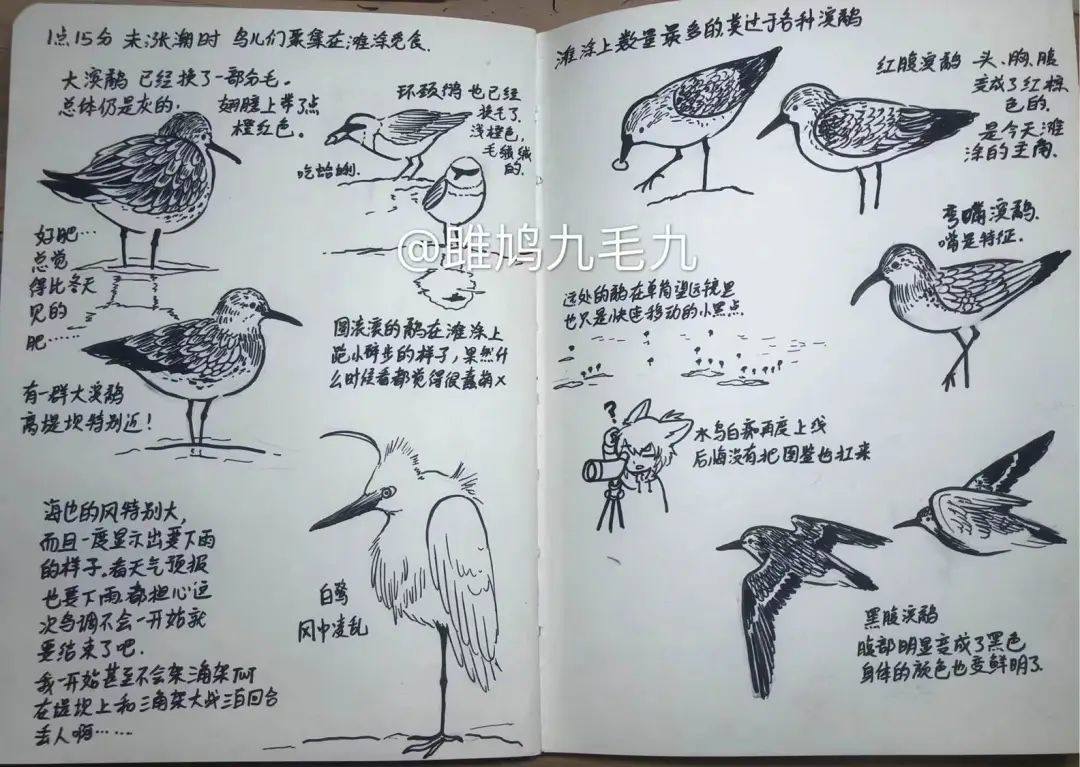 1点15分 未涨潮时 鸟儿们聚集在滩涂觅食.
大滨鹬 已经换了一部分毛.
总体仍是灰的. 翅膀上带了点
橙红色.
环颈鸻 也已经
换毛了.
浅橙色,
毛绒绒
的.
吃蛤蜊.
好肥…
总觉
得比冬天
见的
肥……
圆滚滚的鸻在滩涂上
跑小碎步的样子,果然什
么时候看都觉得很蠢萌x
有一群大滨鹬
离堤坝特别近!
海边的风特别大,
而且一度显示出要下雨
的样子.看天气预报
也要下雨.都担心这
次鸟调不会一开始就
要结束了吧.
我一开始甚至不会架三角架
在堤坝上和三角架大战三百回合
丢人啊……
白鹭
风中凌乱
@雎鸠九毛九
滩涂上数量最多的莫过于各种滨鹬
红腹滨鹬 头、胸、腹
变成了红棕
色的.
是今天滩
涂的主角.
弯嘴滨鹬.
嘴是特征.
远处的鹬在单筒望远镜里
也只是快速移动的小黑点.
?
水鸟白痴再度上线
后悔没有把图鉴也扛来
黑腹滨鹬
腹部明显变成了黑色
身体的颜色也变鲜明了.